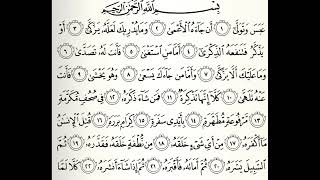 بِسْمِ اللَّهِ الرَّحْمَٰنِ الرَّحِيمِ
عَبَسَ وَتَوَلَّىٰ ١ أَن جَاءَهُ الْأَعْمَىٰ ٢ وَمَا يُدْرِيكَ لَعَلَّهُ يَزَّكَّىٰ ٣ أَوْ
يَذَّكَّرُ فَتَنفَعَهُ الذِّكْرَىٰ ٤ أَمَّا مَنِ اسْتَغْنَىٰ ٥ فَأَنتَ لَهُ تَصَدَّىٰ ٦
وَمَا عَلَيْكَ أَلَّا يَزَّكَّىٰ ٧ وَأَمَّا مَن جَاءَكَ يَسْعَىٰ ٨ وَهُوَ يَخْشَىٰ ٩ فَأَنتَ
عَنْهُ تَلَهَّىٰ ١٠ كَلَّا إِنَّهَا تَذْكِرَةٌ ١١ فَمَن شَاءَ ذَكَرَهُ ١٢ فِي صُحُفٍ مُّكَرَّمَةٍ
١٣ مَّرْفُوعَةٍ مُّطَهَّرَةٍ ١٤ بِأَيْدِي سَفَرَةٍ ١٥ كِرَامٍ بَرَرَةٍ ١٦ قُتِلَ الْإِنسَانُ
مَا أَكْفَرَهُ ١٧ مِنْ أَيِّ شَيْءٍ خَلَقَهُ ١٨ مِن نُّطْفَةٍ خَلَقَهُ فَقَدَّرَهُ ١٩ ثُمَّ
السَّبِيلَ يَسَّرَهُ ٢٠ ثُمَّ أَمَاتَهُ فَأَقْبَرَهُ ٢١ ثُمَّ إِذَا شَاءَ أَنشَرَهُ ٢٢ كَلَّا لَمَّا